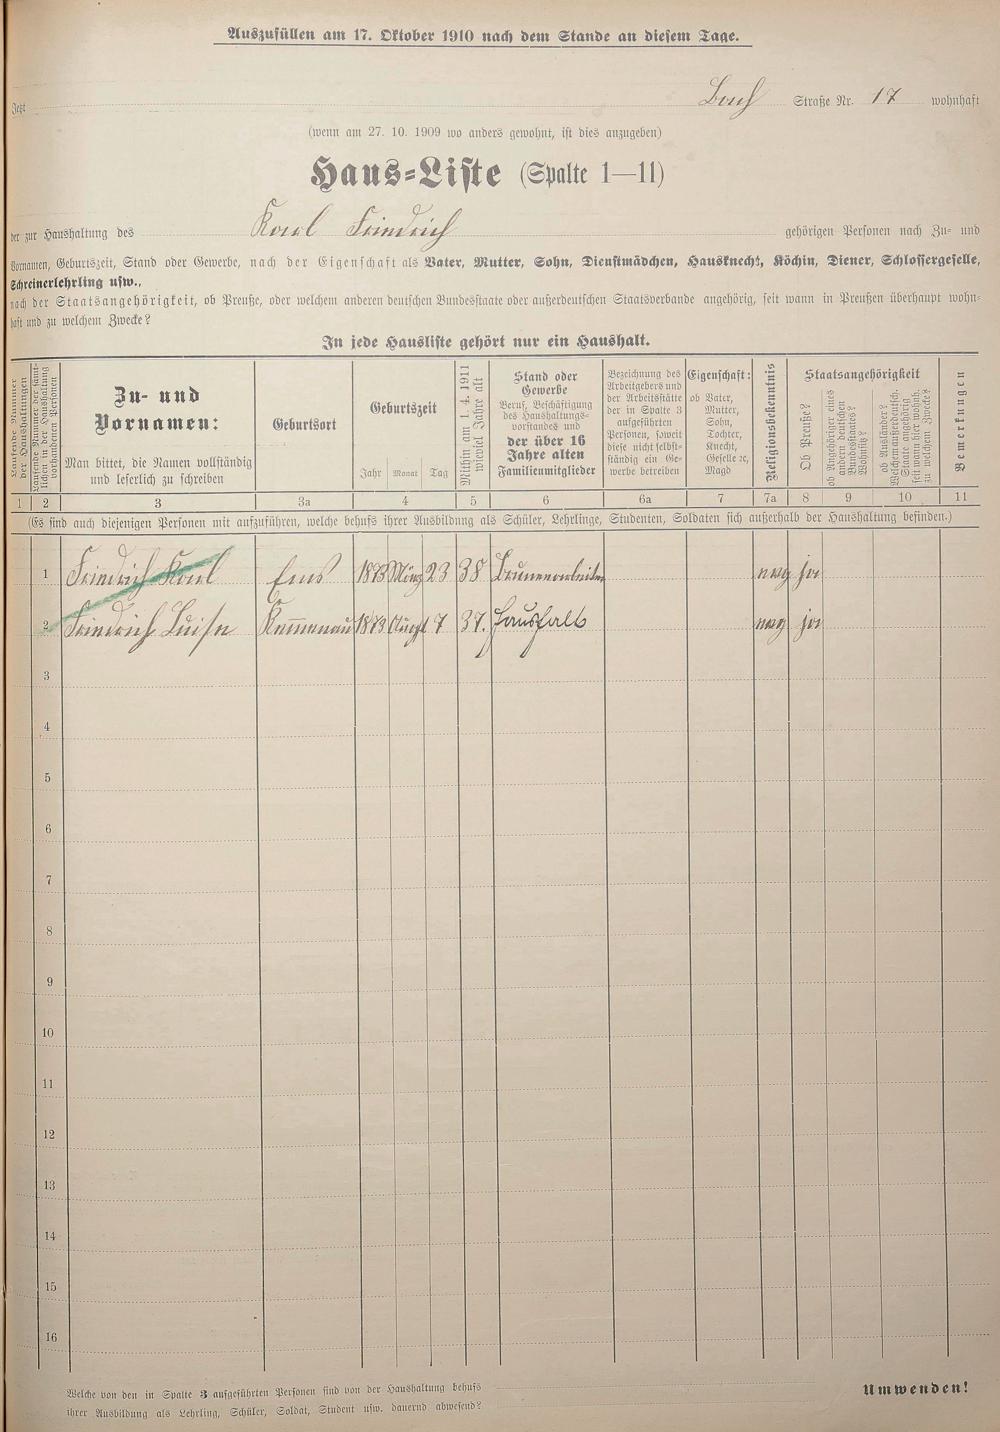 Auszufüllen am 17. Oktober 1910 nach dem Stande an diesem Tage.
Jetzt Bach Straße Nr. 17 wohnhaft
(wenn am 27. 10. 1909 wo anders gewohnt, ist dies anzugeben)
Haus-Liste (Spalte 1—11)
der zur Haushaltung des Karl Friedrich gehörigen Personen nach Zu- und
Vornamen, Geburtszeit, Stand oder Gewerbe, nach der Eigenschaft als Vater, Mutter, Sohn, Dienstmädchen, Hausknecht, Köchin, Diener, Schlossergeselle,
Schreinerlehrling usw.,
nach der Staatsangehörigkeit, ob Preuße, oder welchem anderen deutschen Bundesstaate oder außerdeutschen Staatsverbande angehörig, seit wann in Preußen überhaupt wohn-
haft und zu welchem Zwecke?
In jede Hausliste gehört nur ein Haushalt.
Laufende Nummer
der Haushaltungen
Laufende Nummer der sämt-
lichen in der Haushaltung
vorhandenen Personen
Zu- und
Vornamen:
Man bittet, die Namen vollständig
und leserlich zu schreiben
Geburtsort
Geburtszeit
Jahr Monat Tag
Mithin am 1. 4. 1911
wieviel Jahre alt
Stand oder
Gewerbe
Beruf, Beschäftigung
des Haushaltungs-
vorstandes und
der über 16
Jahre alten
Familienmitglieder
Bezeichnung des
Arbeitgebers und
der Arbeitsstätte
der in Spalte 3
aufgeführten
Personen, soweit
diese nicht selbst-
ständig ein Ge-
werbe betreiben
Eigenschaft:
ob Vater,
Mutter,
Sohn,
Tochter,
Knecht,
Geselle ec,
Magd
Religionsbekenntnis
Staatsangehörigkeit
Ob Preuße?
ob Angehöriger eines
andern deutschen
Bundesstaates?
Wohnsitz?
ob Ausländer?
Welchem außerdeutsch.
Staate angehörig
seit wann hier wohnh.
zu welchem Zwecke?
Bemerkungen
1 2 3 3a 4 5 6 6a 7 7a 8 9 10 11
(Es sind auch diejenigen Personen mit aufzuführen, welche behufs ihrer Ausbildung als Schüler, Lehrlinge, Studenten, Soldaten sich außerhalb der Haushaltung befinden.)
1 Friedrich Karl Ems 1873 März 23 38 Brunnenarbeiter evag ja
2 Friedrich Luise Kemmenau 1873 August 7 37. Haushalt evag ja
3
4
5
6
7
8
9
10
11
12
13
14
15
16
Welche von den in Spalte 3 aufgeführten Personen sind von der Haushaltung behufs
ihrer Ausbildung als Lehrling, Schüler, Soldat, Student usw. dauernd abwesend?
Umwenden!